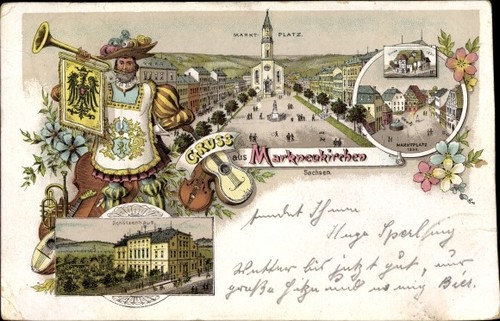 MARKT PLATZ.
MARKTPLATZ
GRUSS
aus Markneukirchen
Sachsen
Schützenhaus
sendet Ihnen
Hugo Sperling
Wetter bis jetzt gut, nur
große Hitze und wenig Bier.